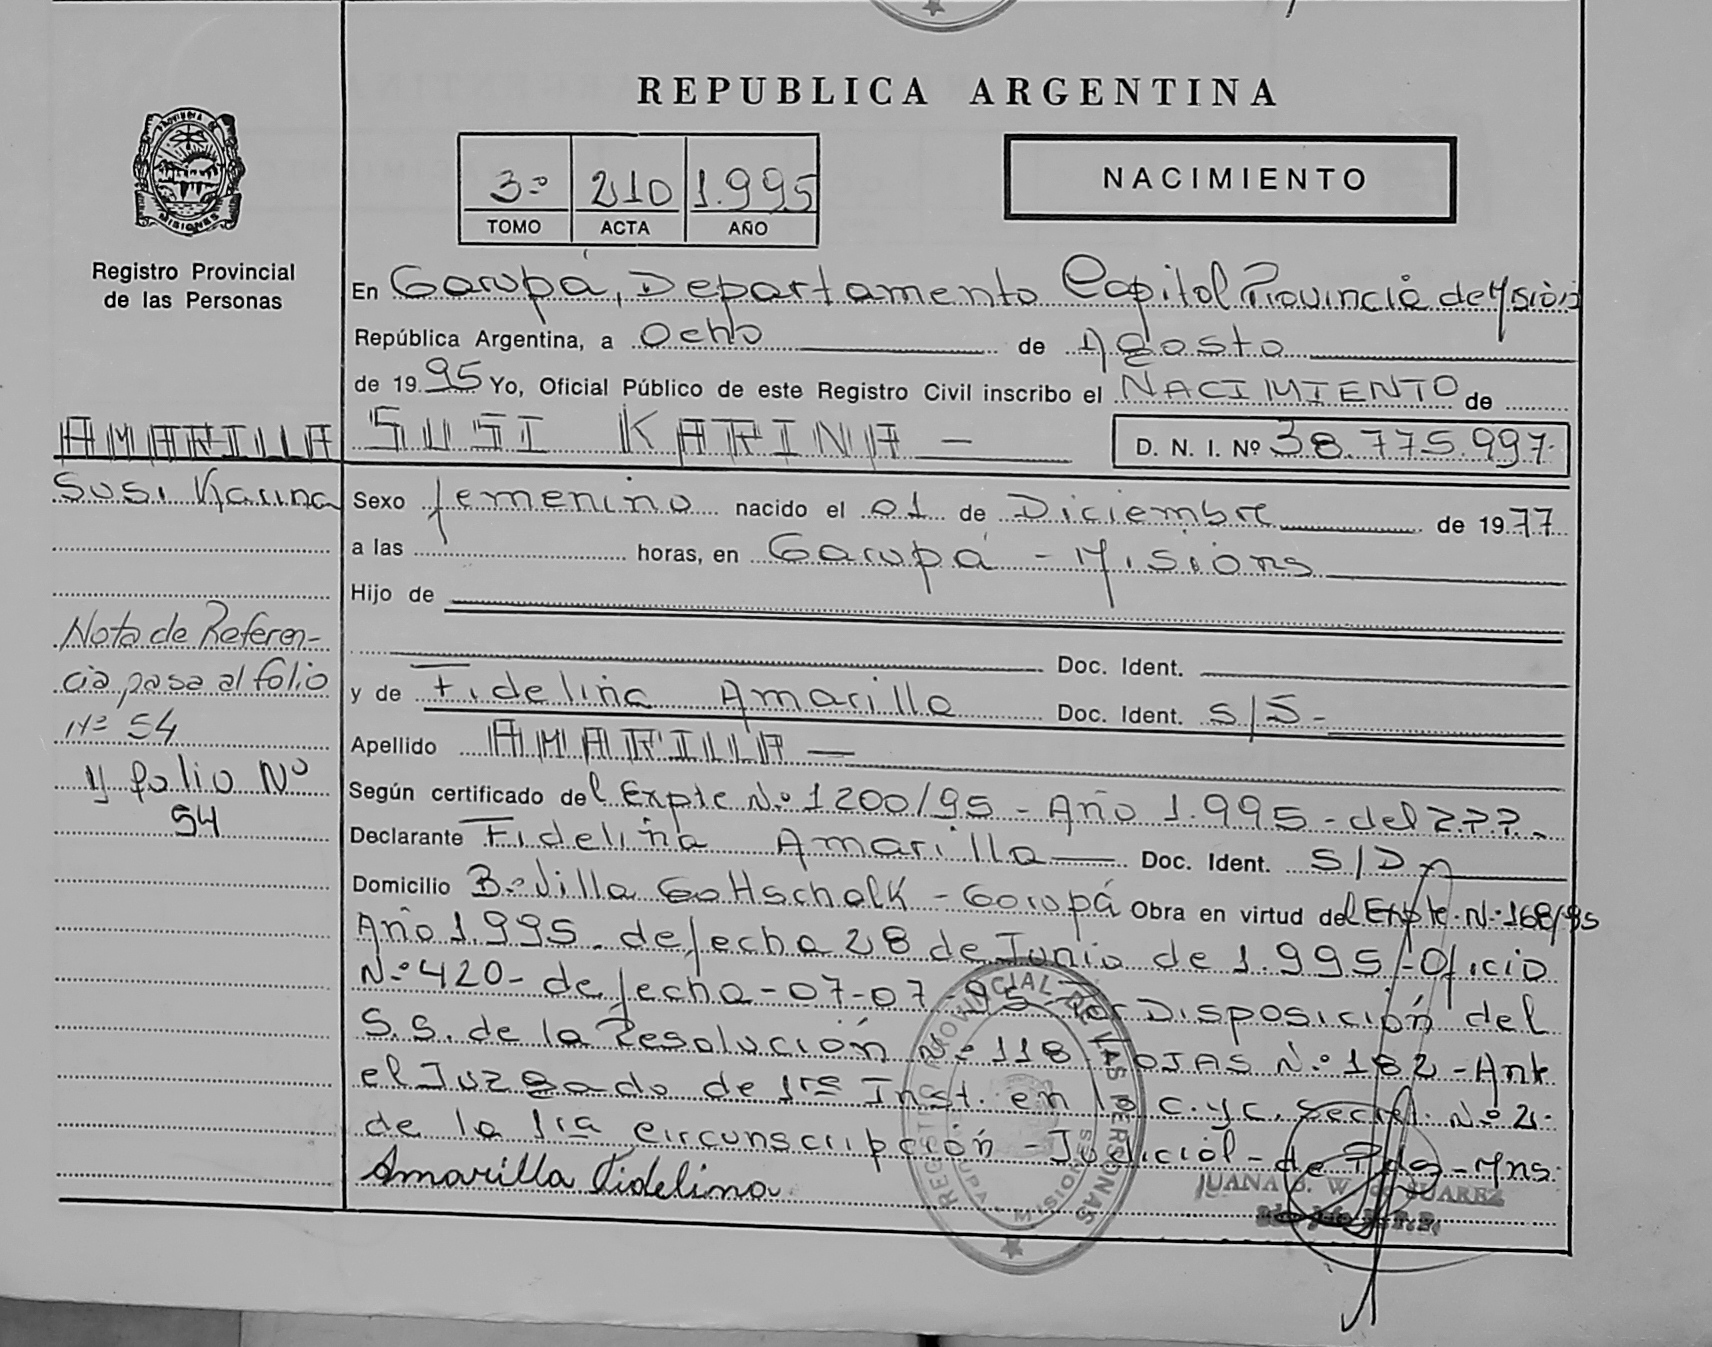 REPUBLICA ARGENTINA
PROVINCIA DE MISIONES
Registro Provincial
de las Personas
3º 210 1.995
TOMO ACTA AÑO
NACIMIENTO
En Garupá, Departamento Capital Provincia de Misiones
República Argentina, a Ocho de Agosto
de 1995 Yo, Oficial Público de este Registro Civil inscribo el NACIMIENTO de
AMARILLA SUSI KARINA —
D. N. I. Nº 38.775.997.
Susi Karina
Sexo femenino nacido el 01 de Diciembre de 1977
a las horas, en Garupá - Misions
Hijo de
Doc. Ident.
y de Fideliña Amarilla Doc. Ident. S/S-
Apellido AMARILLA —
Según certificado del Expte Nº 1200/95 - Año 1.995 - del
Declarante Fideliña Amarilla — Doc. Ident. S/D
Domicilio Bº Villa Gottschalk - Garupá Obra en virtud del Expte. Nº 168/95
Año 1.995. de fecha 28 de Junio de 1.995 - Oficio
Nº 420 - de fecha - 07-07-95 - Por Disposición del
S.S. de la Resolución Nº 118 FOJAS Nº 182 - Ante
el Juzgado de 1ra Inst. en lo C. y C. Secret. Nº 2.
de la 1ra circunscripción - Judicial - de Pdas - Mns.
Amarilla Fidelina
Nota de Referen-
cia pasa al folio
Nº 54
y folio Nº
54
REGISTRO PROVINCIAL DE LAS PERSONAS
MISIONES
JUANA JUAREZ